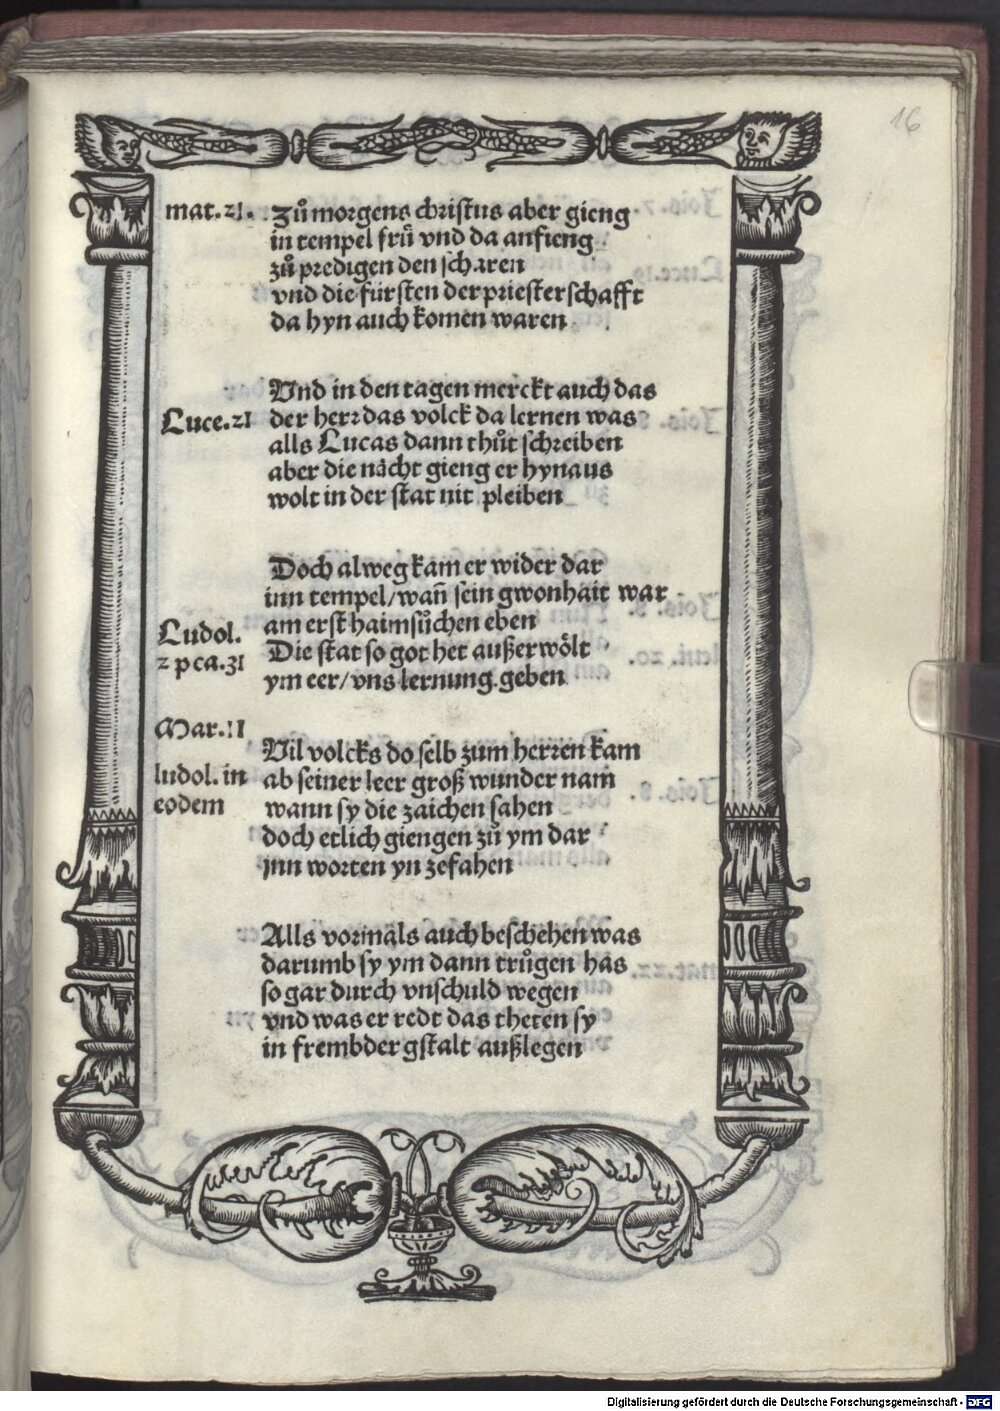 16
mat. 21. Zů morgens christus aber gieng
in tempel frů vnd da anfieng
zů predigen den scharen
vnd die fürsten der priesterschafft
da hyn auch komen waren
Vnd in den tagen merckt auch das
Luce. 21 der herr das volck da lernen was
alls Lucas dann thůt schreiben
aber die nächt gieng er hynaus
wolt in der stat nit pleiben
Doch alweg kam er wider dar
inn tempel/wañ sein gwonhait war
Ludol. am erst haimsůchen eben
2 p ca. 31 Die stat so got het außerwölt
ym eer/vns lernung geben
Mar. 11
Vil volcks do selb zum herren kam
ludol. in ab seiner leer groß wunder nam
eodem wann sy die zaichen sahen
doch etlich giengen zů ym dar
jnn worten yn zefahen
Alls vormals auch beschehen was
darumb sy ym dann trůgen has
so gar durch vnschuld wegen
vnd was er redt das theten sy
in frembder gstalt außlegen
Digitalisierung gefördert durch die Deutsche Forschungsgemeinschaft - DFG